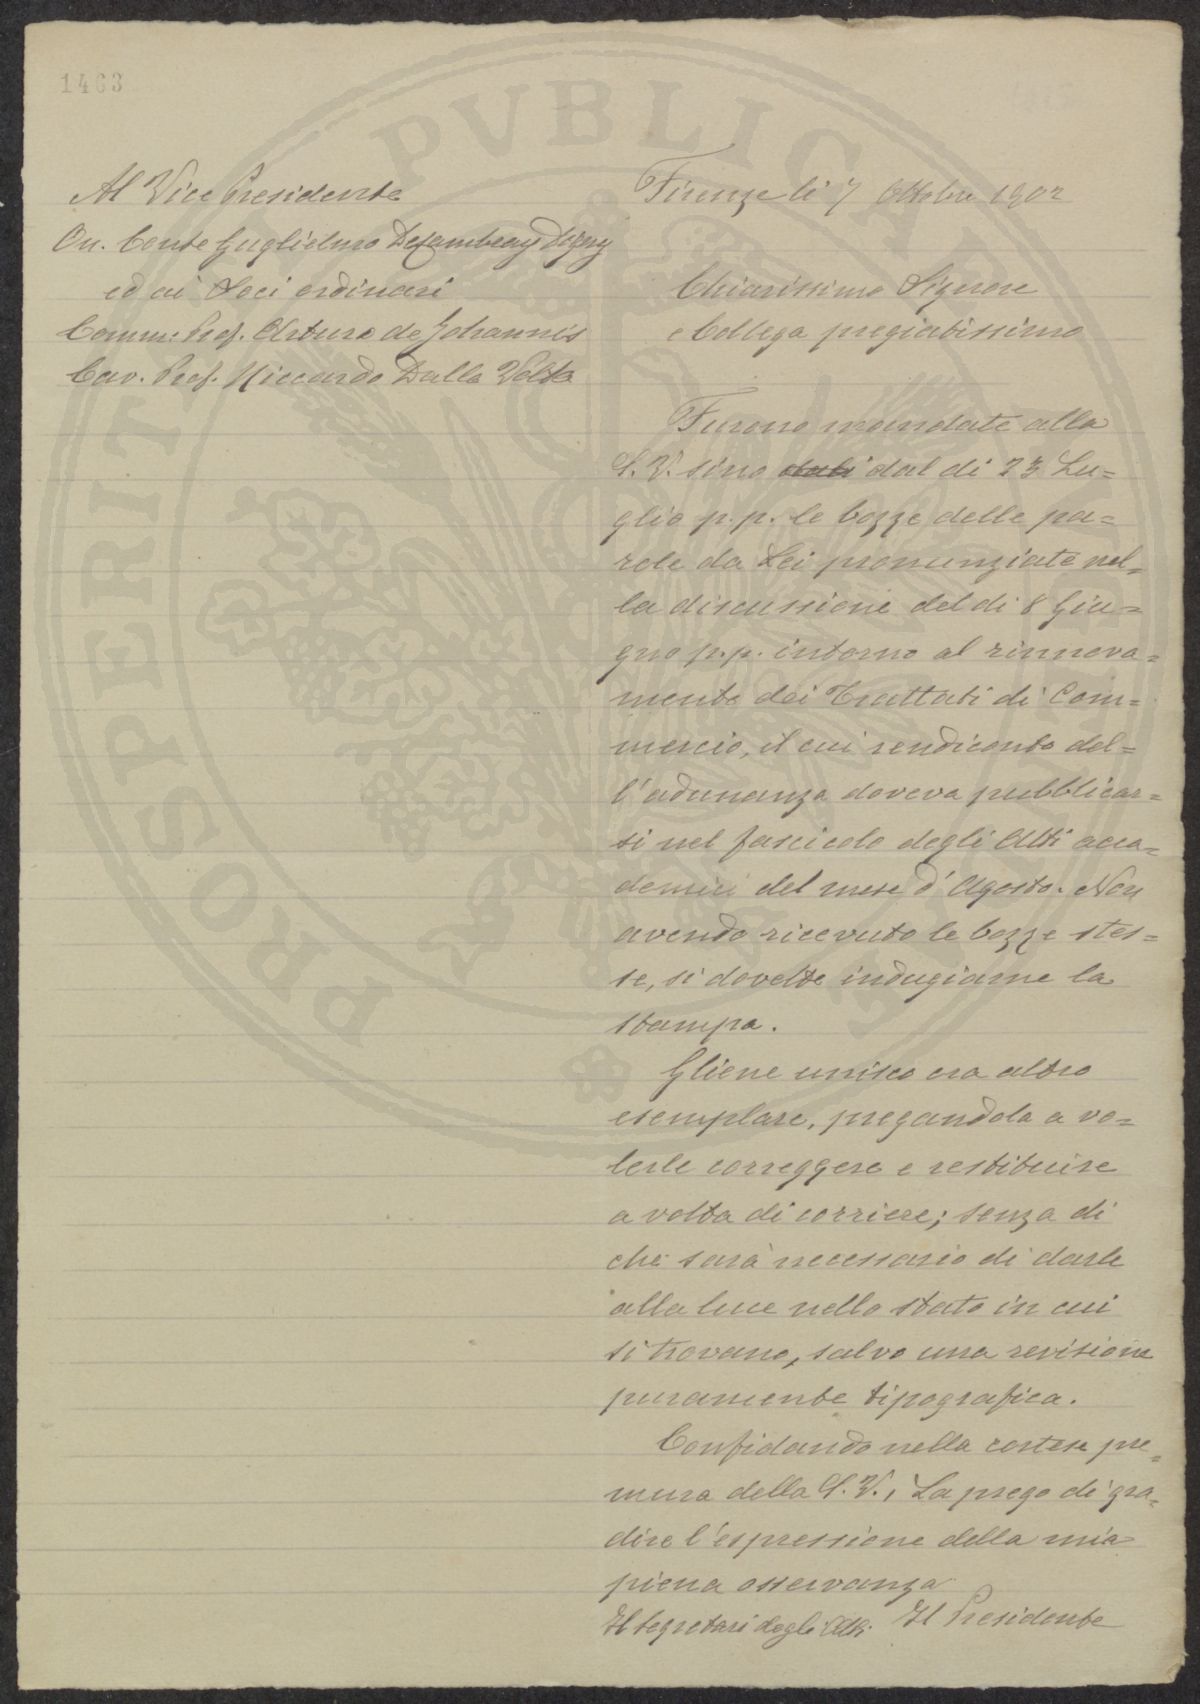 1463
Al Vice Presidente
On. Conte Guglielmo De Cambray Digny
ed ai Soci ordinari
Comm: Prof. Arturo de Johannis
Cav. Prof. Riccardo Dalla Volta
Firenze li 7 Ottobre 1902
Chiarissimo Signore
e Collega pregiatissimo
Furono mandate alla
S. V. sino dal di 23 Lu=
glio p. p. le bozze delle pa=
role da Lei pronunziate nel=
la discussione del di 8 Giu=
gno p. p. intorno al rinnova=
mento dei Trattati di Com=
mercio, il cui rendiconto del=
l'adunanza doveva pubblicar=
si nel fascicolo degli Atti acca=
demici del mese d'Agosto. Non
avendo ricevuto le bozze stes=
se, si dovette indugiarne la
stampa.
Gliene unisco ora altro
esemplare, pregandola a vo=
lerle correggere e restituire
a volta di corriere; senza di
che sarà necessario di darle
alla luce nello stato in cui
si trovano, salvo una revisione
puramente tipografica.
Confidando nella cortese pre=
mura della S. V., La prego di gra=
dire l'espressione della mia
piena osservanza
Il Segretari degli Atti Il Presidente
PROSPERITATI PVBLICAE